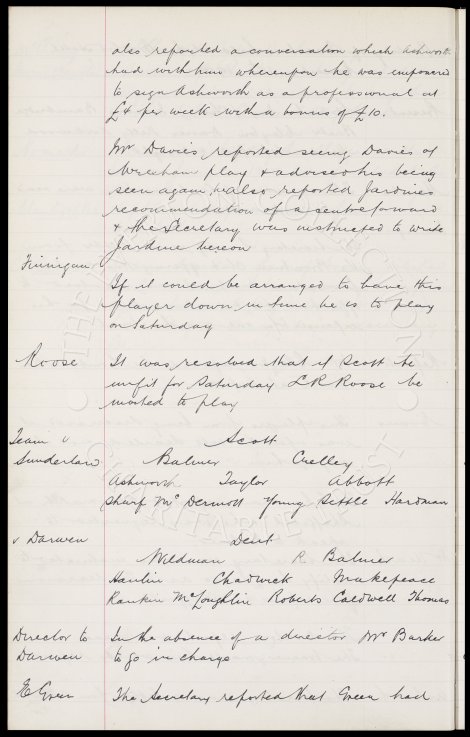 also reported a conversation which Ashworth
had with him whereupon he was empowered
to sign Ashworth as a professional at
£4 per week with a bonus of £10.
Mr Davies reported seeing Davies of
Wrexham play & advised his being
seen again, he also reported Jardines
recommendation of a centre forward
& the Secretary was instructed to write
Jardine hereon
Finnigan
If it could be arranged to have this
player down in time he is to play
on Saturday
Roose
It was resolved that if Scott be
unfit for Saturday L R Roose be
invited to play
Team v
Sunderland
Scott
Balmer Crelley
Ashworth Taylor Abbott
Sharp McDermott Young Settle Hardman
v Darwen
Dent
Wildman R Balmer
Chadwick Makepeace
Rankin McLoughlin Roberts Caldwell Thomas
Director to
Darwen
In the absence of a director Mr Barker
to go in charge
E Green
The Secretary reported that Green had